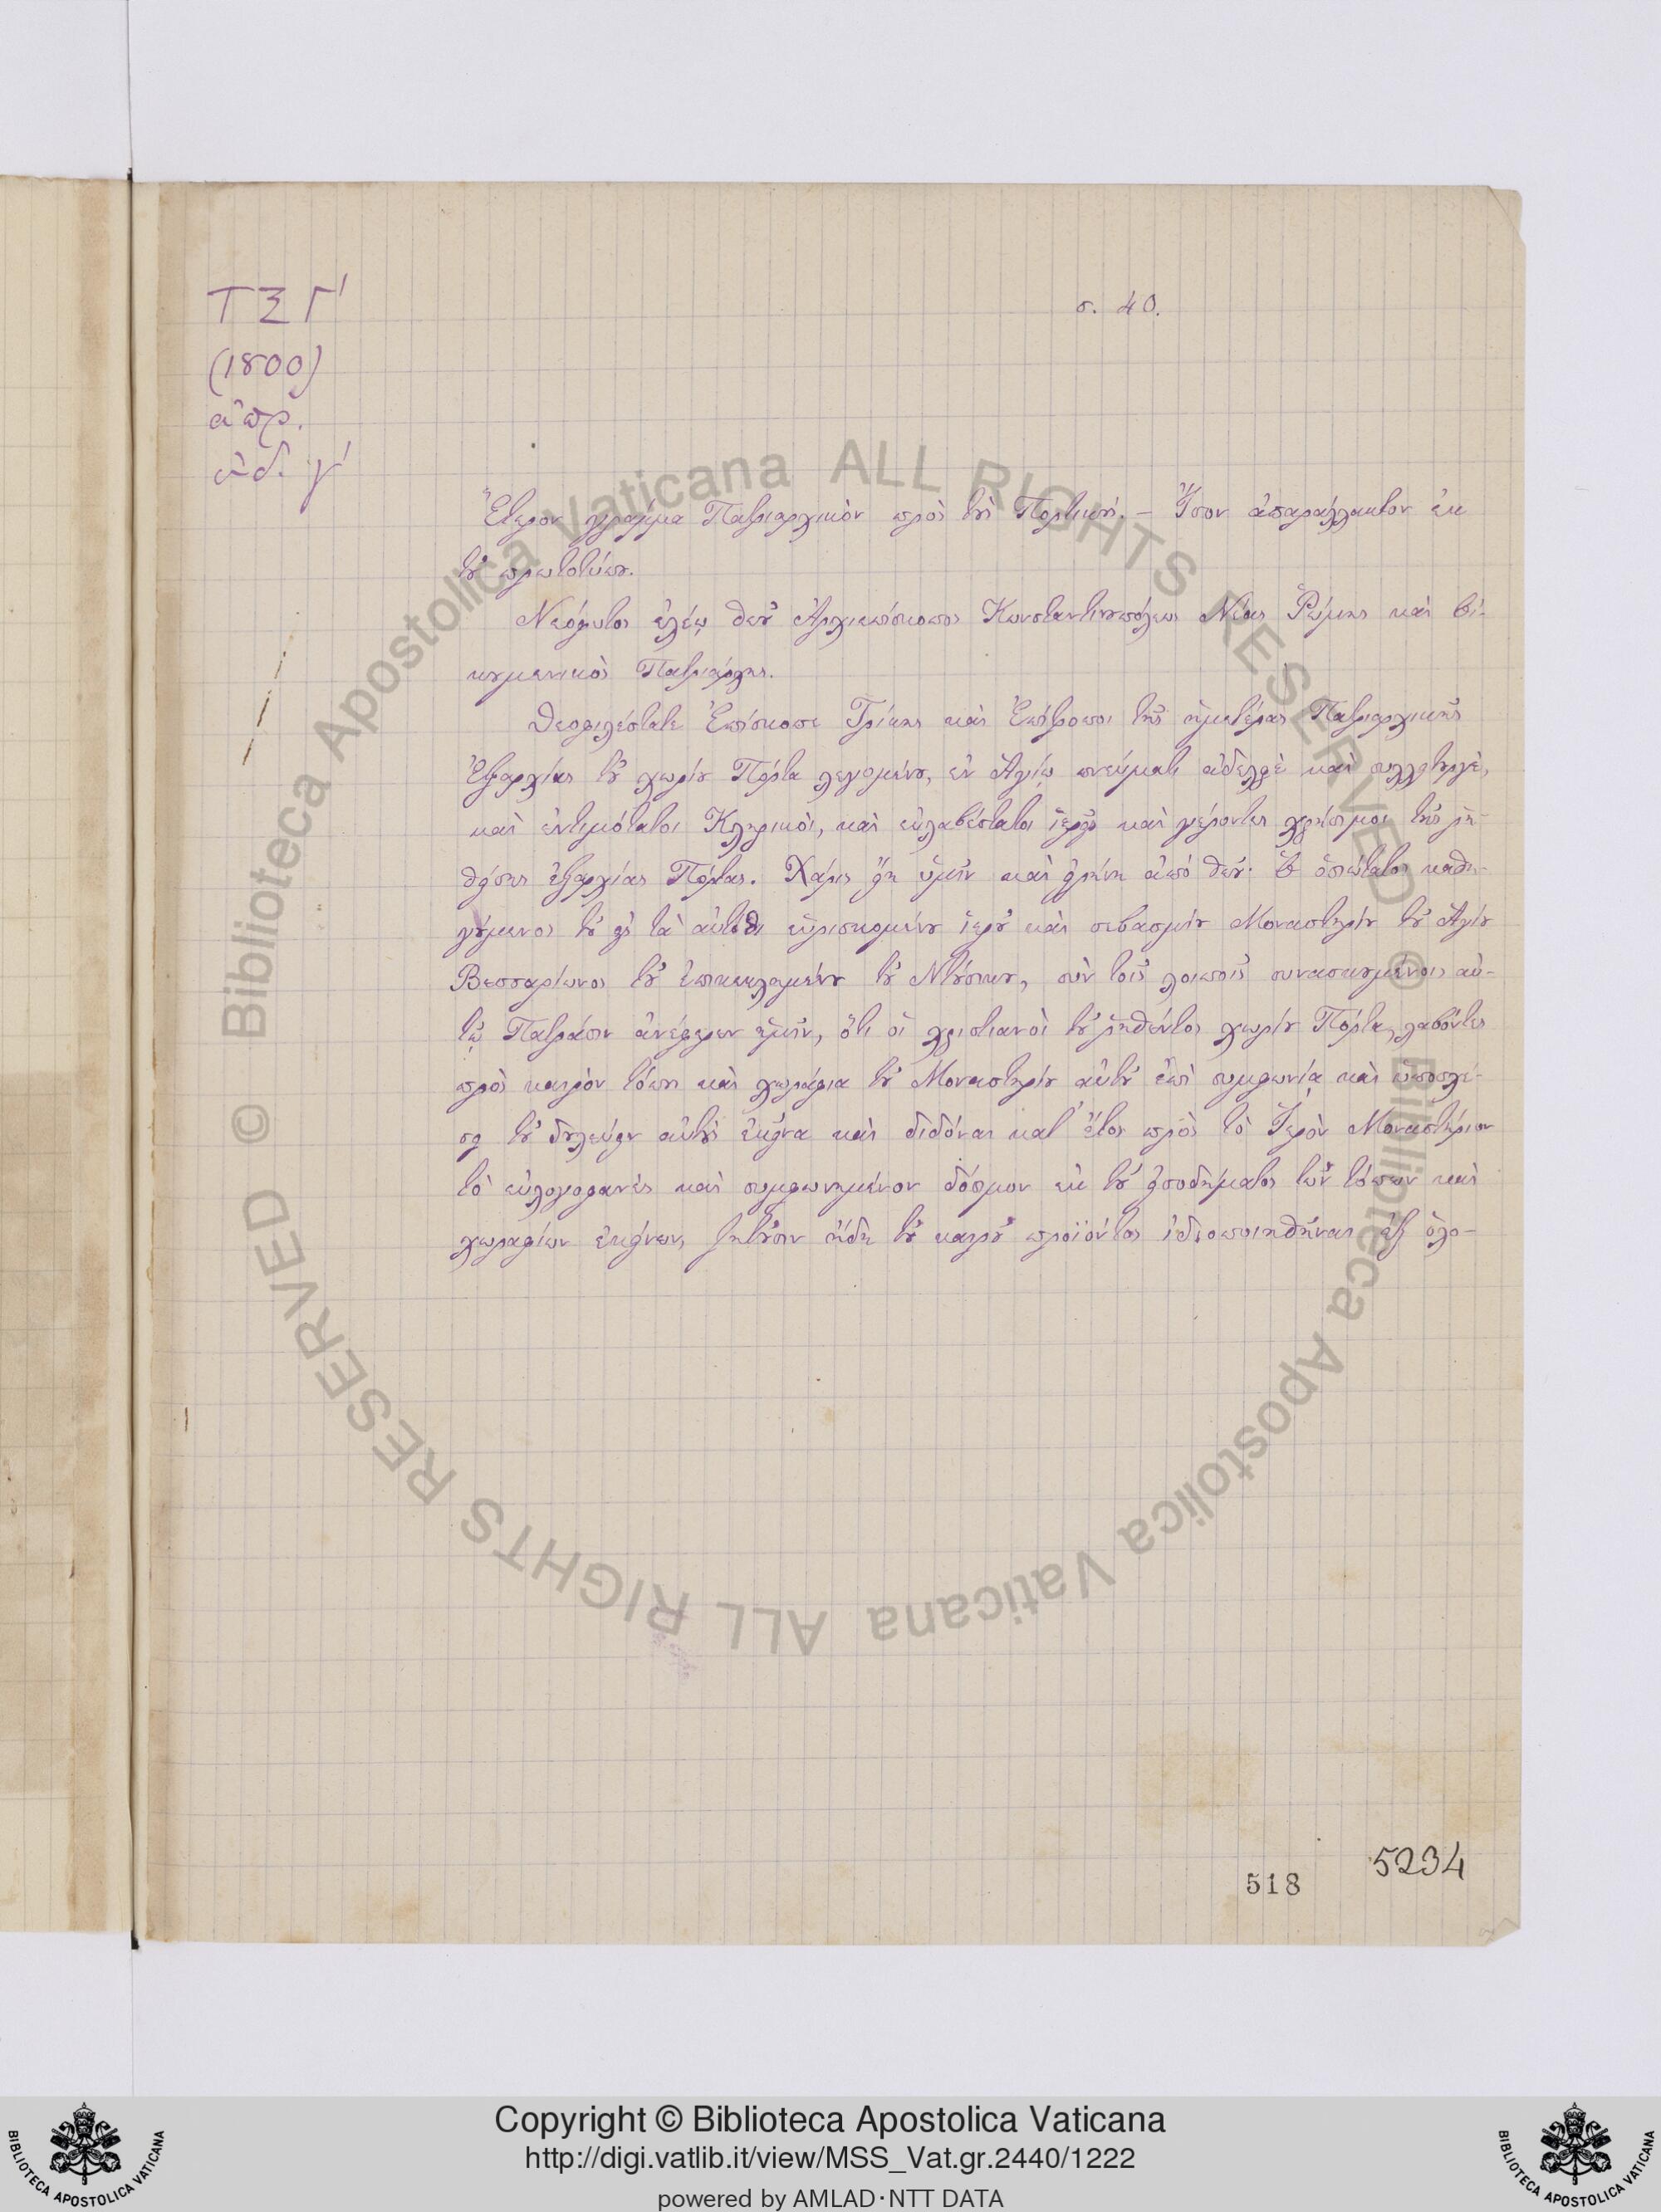 ΤΣΓ'
(1800)
ἀπρ.
ἰνδ. γ'
σ. 40.
Ἕτερον γράμμα Πατριαρχικὸν πρὸς τοὺς Πορτινούς. – Ἴσον ἀπαράλλακτον ἐκ
τοῦ πρωτοτύπου.
Νεόφυτος ἐλέῳ θεοῦ Ἀρχιεπίσκοπος Κωνσταντινουπόλεως Νέας Ῥώμης καὶ Οἰ-
κουμενικὸς Πατριάρχης.
Θεοφιλέστατε Ἐπίσκοπε Τρίκης καὶ Ἐπίτροποι τῆς ἡμετέρας Πατριαρχικῆς
Ἐξαρχίας τοῦ χωρίου Πόρτα λεγομένου, ἐν Ἁγίῳ πνεύματι ἀδελφὲ καὶ συλλειτουργὲ,
καὶ ἐντιμότατοι Κληρικοὶ, καὶ εὐλαβέστατοι ἱερεῖς καὶ γέροντες χρήσιμοι τῆς ῥη-
θείσης ἐξαρχίας Πόρτας. Χάρις εἴη ὑμῖν καὶ εἰρήνη ἀπό θεοῦ. Ὁ ὁσιώτατος καθη-
γούμενος τοῦ εἰς τὰ αὐτόθι εὑρισκομένου ἱεροῦ καὶ σεβασμίου Μοναστηρίου τοῦ Ἁγίου
Βεσσαρίωνος τοῦ ἐπικεκλημένου τοῦ Ντούσκου, σὺν τοῖς λοιποῖς συνασκουμένοις αὐ-
τῷ Πατράσιν ἀνέφερεν ἡμῖν, ὅτι οἱ χριστιανοὶ τοῦ ῥηθέντος χωρίου Πόρτα, λαβόντες
πρὸς καιρὸν τόπους καὶ χωράφια τοῦ Μοναστηρίου αὐτοῦ ἐπὶ συμφωνίᾳ καὶ ὑποσχέ-
σει τοῦ δουλεύειν αὐτοὺς ἐκεῖνα καὶ διδόναι κατ' ἔτος πρὸς τὸ Ἱερὸν Μοναστήριον
τὸ εὐλογοφανὲς καὶ συμφωνημένον δόσιμον ἐκ τοῦ εἰσοδήματος τῶν τόπων καὶ
χωραφίων ἐκείνων, ζητοῦσιν ἤδη τοῦ καιροῦ προϊόντος ἰδιοποιηθῆναι ἐξ ὁλο-
518
5234
© Biblioteca Apostolica Vaticana ALL RIGHTS RESERVED
© Biblioteca Apostolica Vaticana ALL RIGHTS RESERVED
Copyright © Biblioteca Apostolica Vaticana
http://digi.vatlib.it/view/MSS_Vat.gr.2440/1222
powered by AMLAD·NTT DATA
BIBLIOTECA APOSTOLICA VATICANA
BIBLIOTECA APOSTOLICA VATICANA